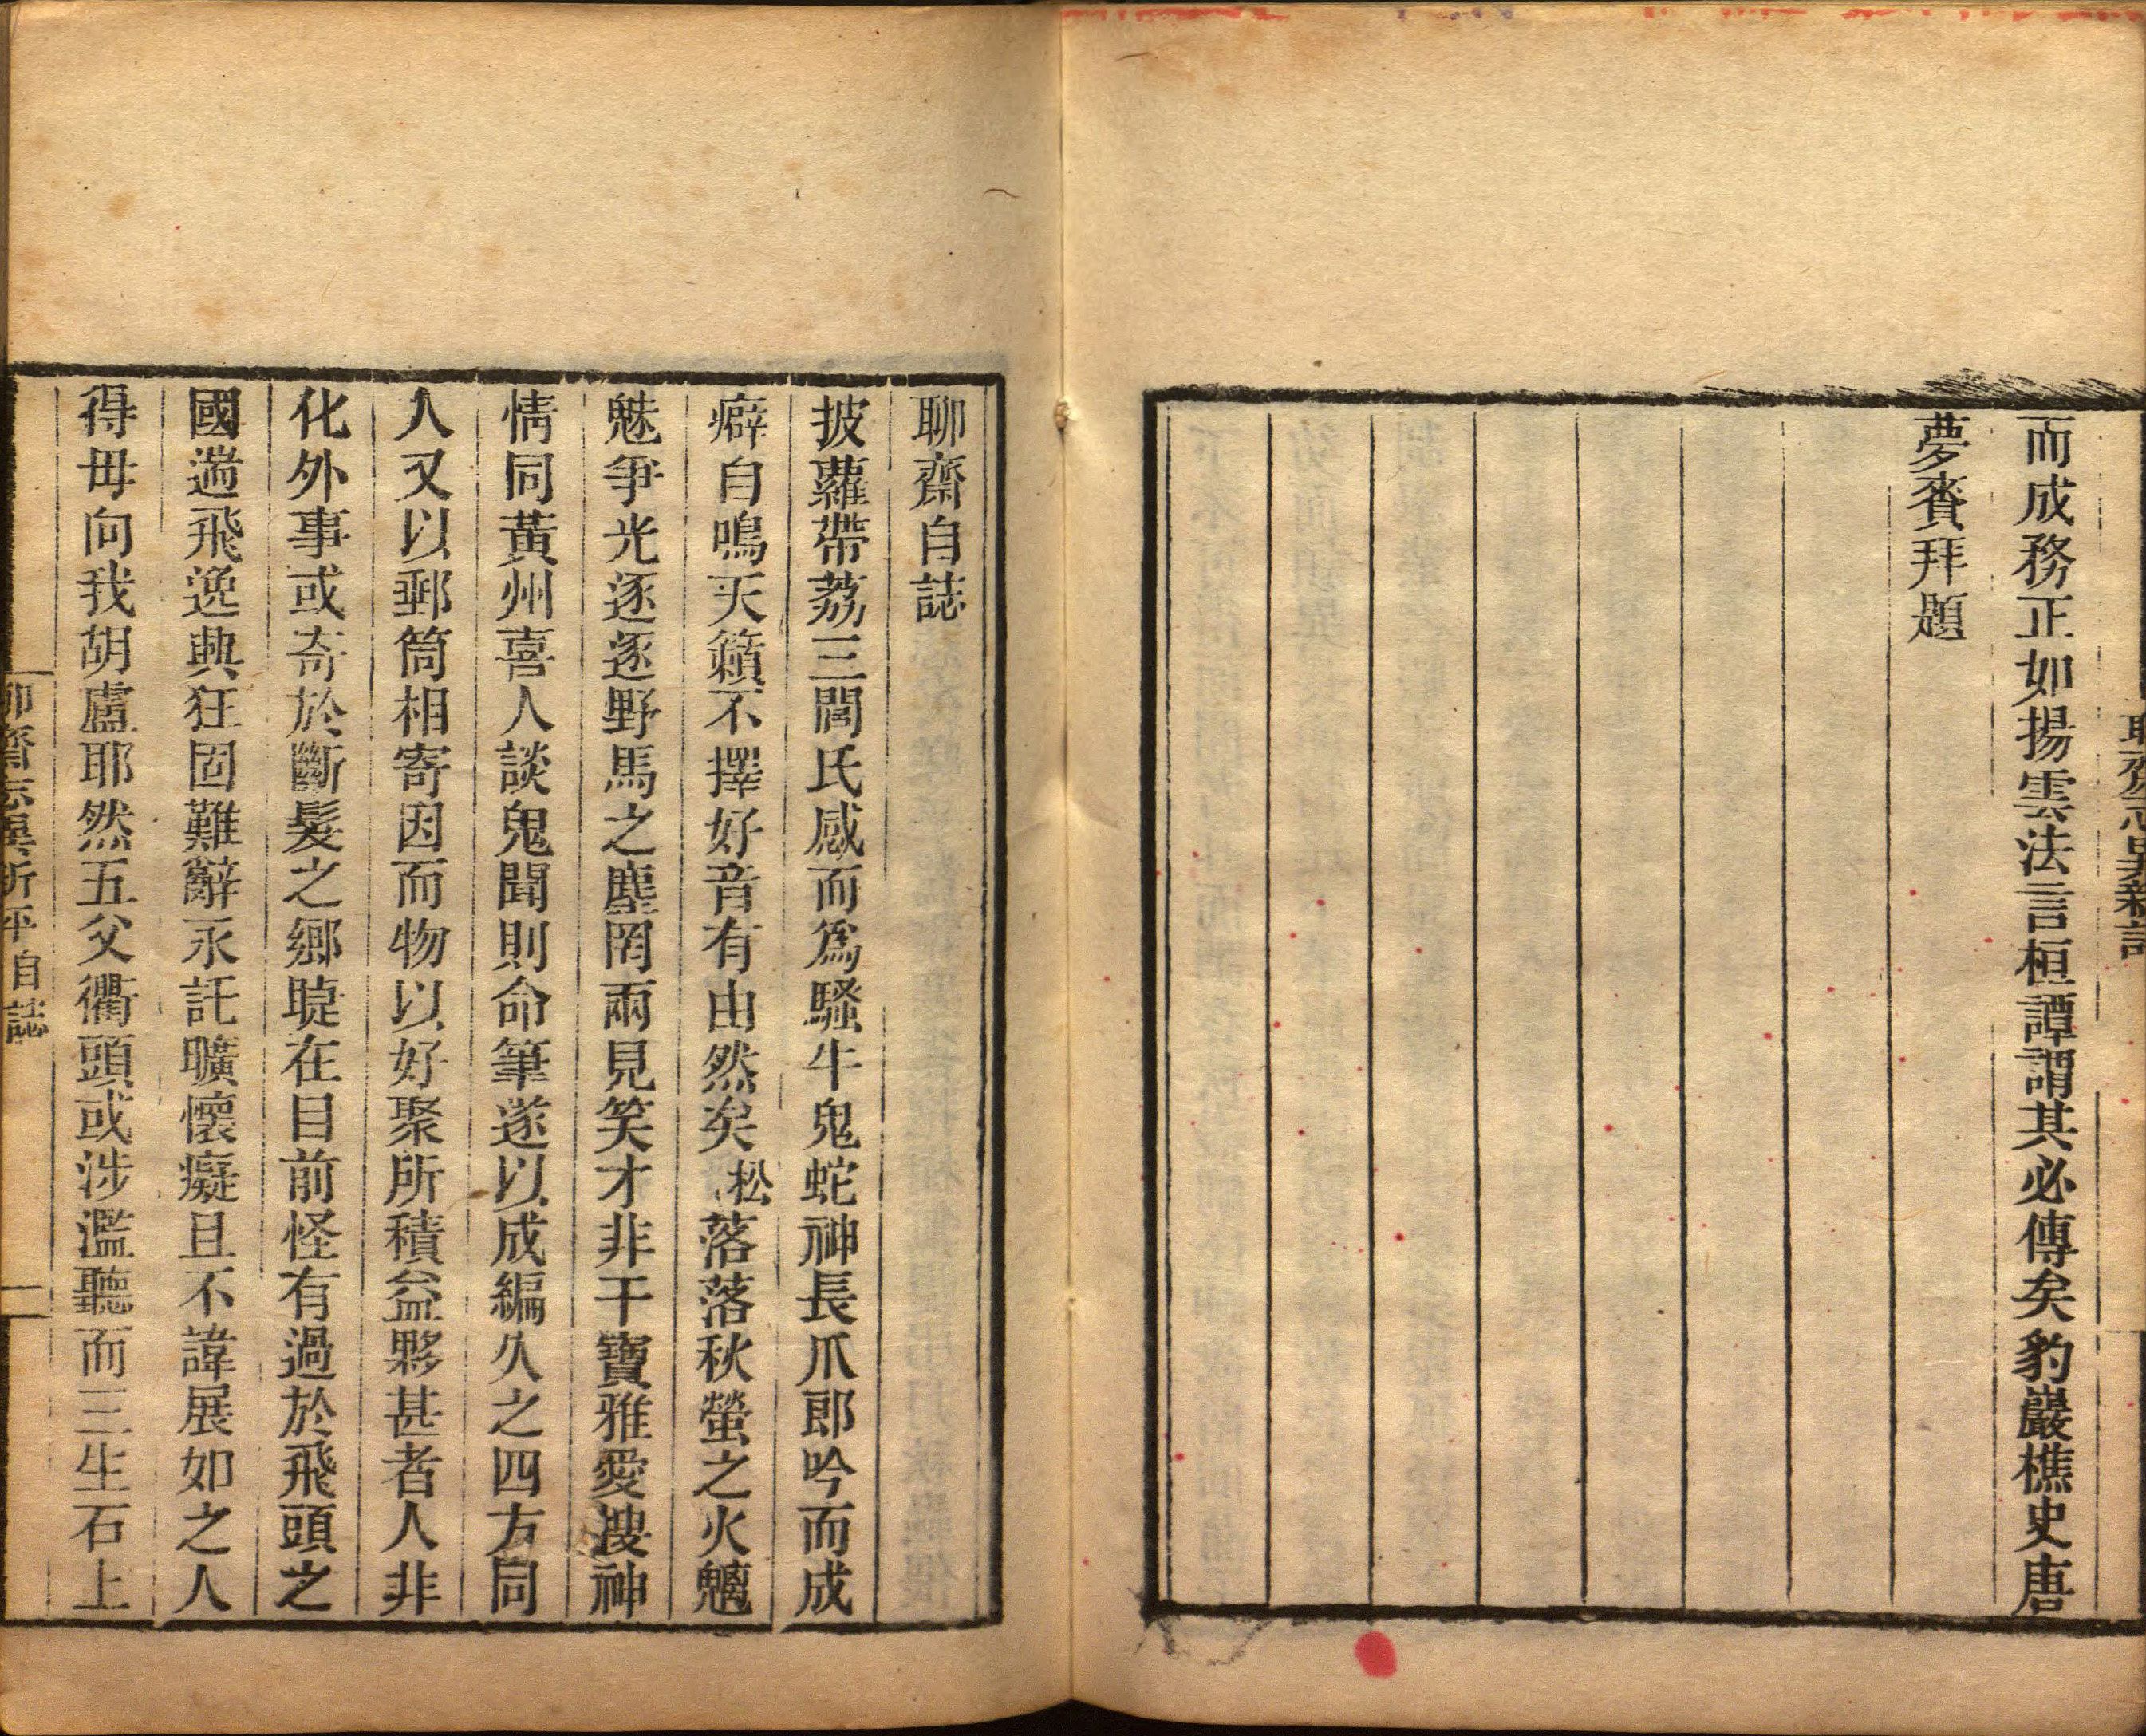 聊齋志異新評
而成務正如揚雲法言桓譚謂其必傳矣豹巖樵史唐
夢賚拜題
聊齋自誌
披蘿帶荔三閭氏感而爲騷牛鬼蛇神長爪郎吟而成
癖自鳴天籟不擇好音有由然矣松落落秋螢之火魑
魅爭光逐逐野馬之塵罔兩見笑才非干寶雅愛搜神
情同黃州喜人談鬼聞則命筆遂以成編久之四方同
人又以郵筒相寄因而物以好聚所積益夥甚者人非
化外事或奇於斷髮之鄉睫在目前怪有過於飛頭之
國遄飛逸興狂固難辭永託曠懷癡且不諱展如之人
得毋向我胡盧耶然五父衢頭或涉濫聽而三生石上
聊齋志異新評 自誌 一